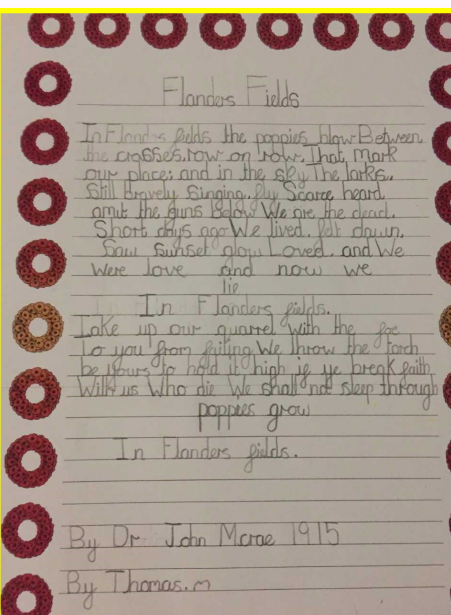 Flanders Fields
In Flanders fields the poppies blow Between
the crosses, row on row, That Mark
our place; and in the sky The larks,
Still bravely Singing, fly Scarce heard
amit the guns Below We are the dead.
Short days ago We lived, felt dawn,
Saw Sunset glow Loved and We
Were love and now we
lie
In Flanders fields.
Take up our quarrel with the foe
To you from failing We throw the torch
be yours to hold it high if ye break faith
With us Who die We shall not sleep through
poppies grow
In Flanders fields.
By Dr John Mcrae 1915
By Thomas.m